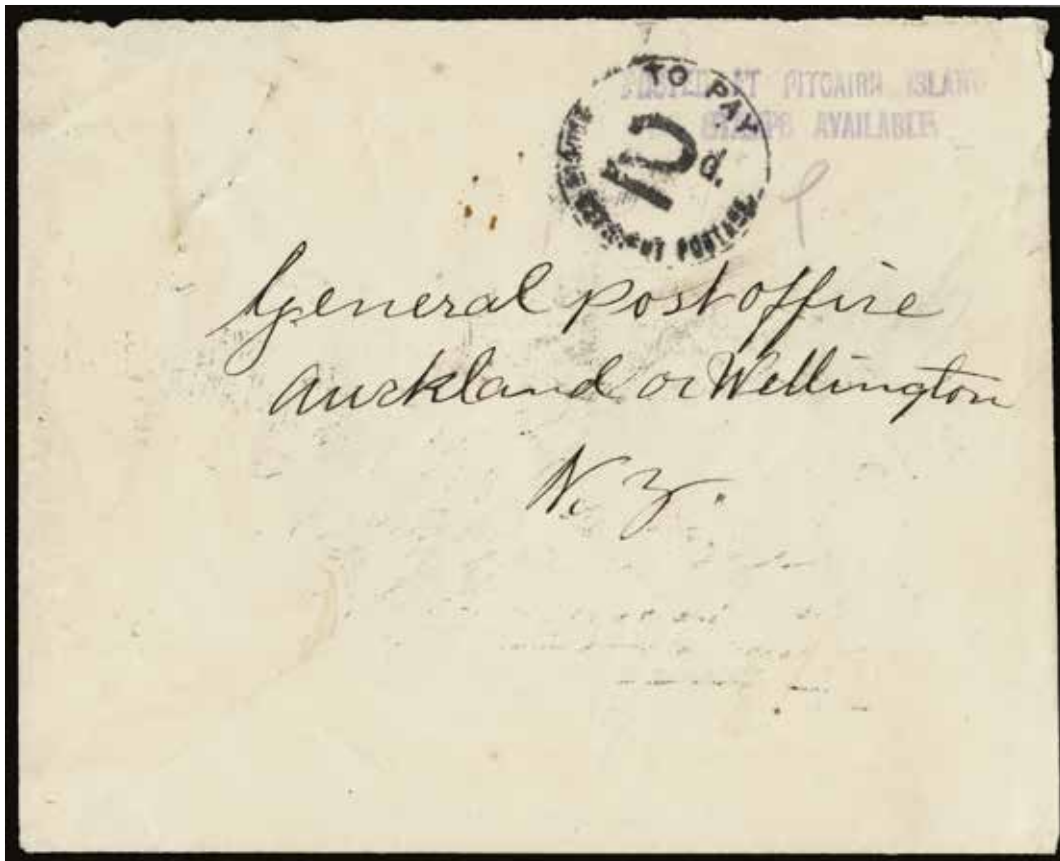 POSTED AT PITCAIRN ISLAND
STAMPS AVAILABLE
TO PAY
d.
DEFICIENT POSTAGE
General post office
Auckland or Wellington
N. Z.